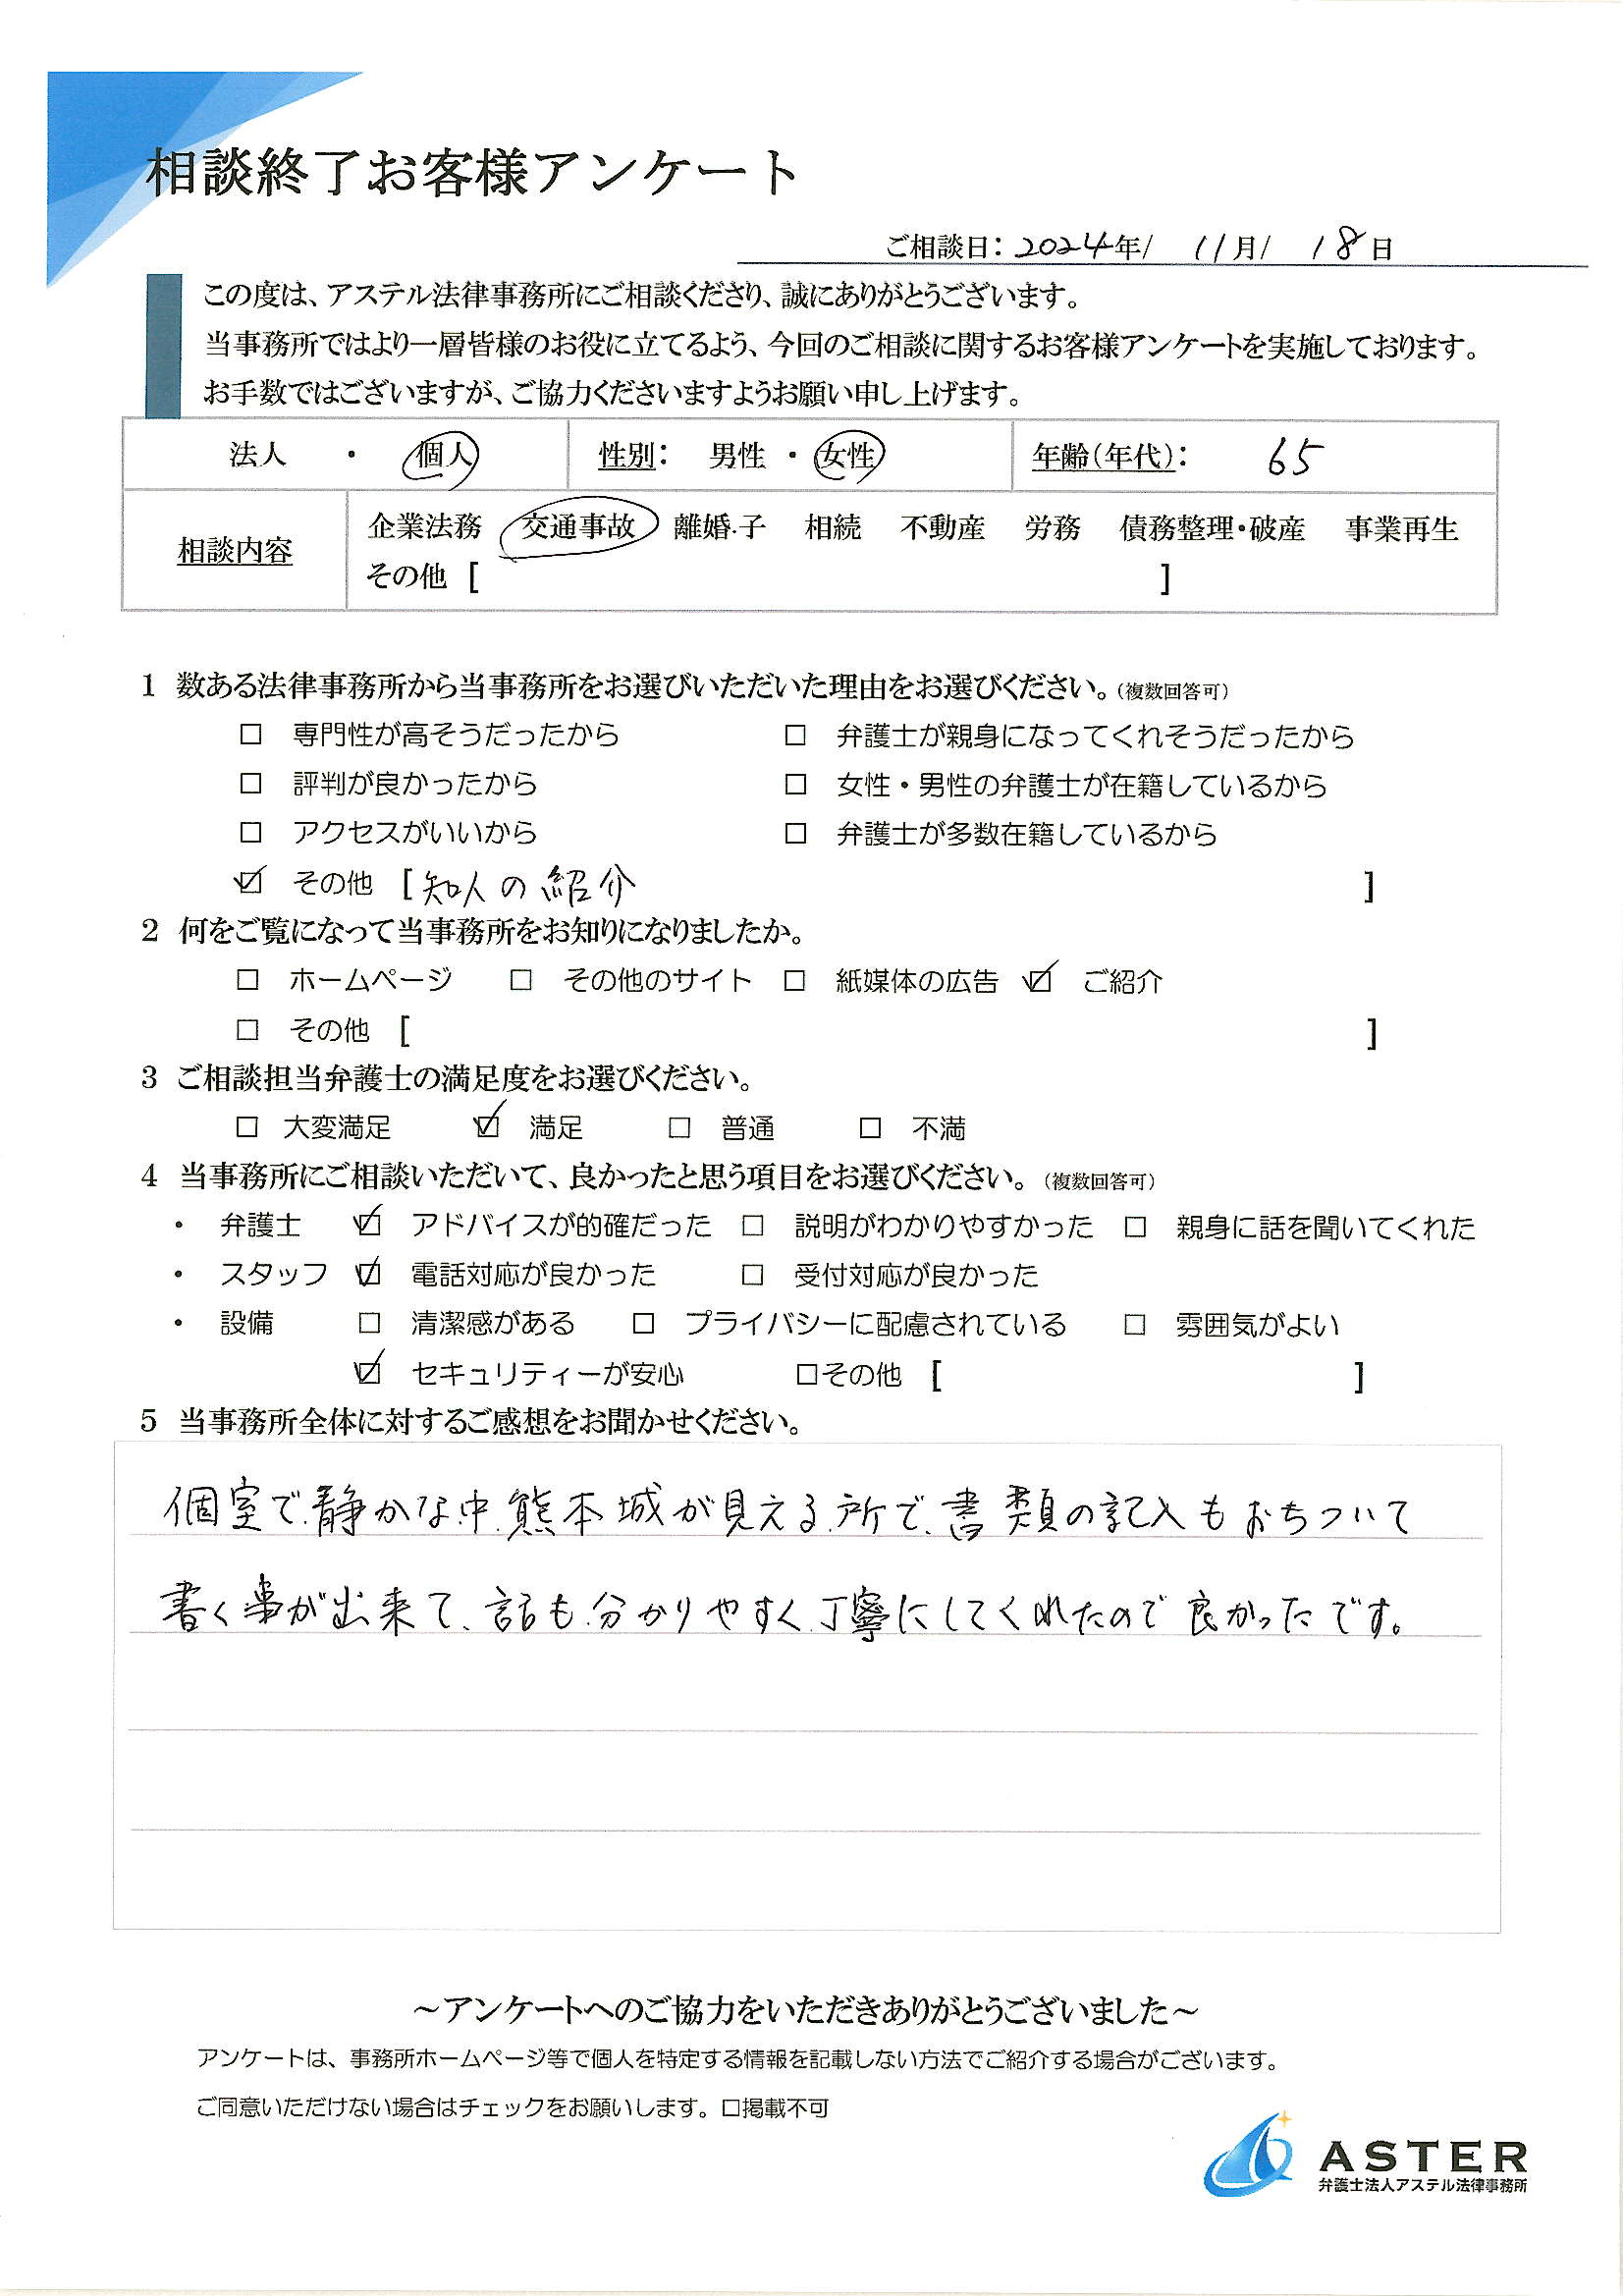 相談終了お客様アンケート
ご相談日：2024年/ 11月/ 18日
この度は、アステル法律事務所にご相談くださり、誠にありがとうございます。
当事務所ではより一層皆様のお役に立てるよう、今回のご相談に関するお客様アンケートを実施しております。
お手数ではございますが、ご協力くださいますようお願い申し上げます。
法人 ・ 個人 性別： 男性 ・ 女性 年齢（年代）： 65
相談内容 企業法務 交通事故 離婚・子 相続 不動産 労務 債務整理・破産 事業再生
その他 [ ]
1 数ある法律事務所から当事務所をお選びいただいた理由をお選びください。（複数回答可）
□ 専門性が高そうだったから □ 弁護士が親身になってくれそうだったから
□ 評判が良かったから □ 女性・男性の弁護士が在籍しているから
□ アクセスがいいから □ 弁護士が多数在籍しているから
☑ その他 [知人の紹介 ]
2 何をご覧になって当事務所をお知りになりましたか。
□ ホームページ □ その他のサイト □ 紙媒体の広告 ☑ ご紹介
□ その他 [ ]
3 ご相談担当弁護士の満足度をお選びください。
□ 大変満足 ☑ 満足 □ 普通 □ 不満
4 当事務所にご相談いただいて、良かったと思う項目をお選びください。（複数回答可）
・ 弁護士 ☑ アドバイスが的確だった □ 説明がわかりやすかった □ 親身に話を聞いてくれた
・ スタッフ ☑ 電話対応が良かった □ 受付対応が良かった
・ 設備 □ 清潔感がある □ プライバシーに配慮されている □ 雰囲気がよい
☑ セキュリティーが安心 □その他 [ ]
5 当事務所全体に対するご感想をお聞かせください。
個室で、静かな中、熊本城が見える所で、書類の記入もおちついて
書く事が出来て、話も分かりやすく丁寧にしてくれたので良かったです。
～アンケートへのご協力をいただきありがとうございました～
アンケートは、事務所ホームページ等で個人を特定する情報を記載しない方法でご紹介する場合がございます。
ご同意いただけない場合はチェックをお願いします。□掲載不可
ASTER
弁護士法人アステル法律事務所